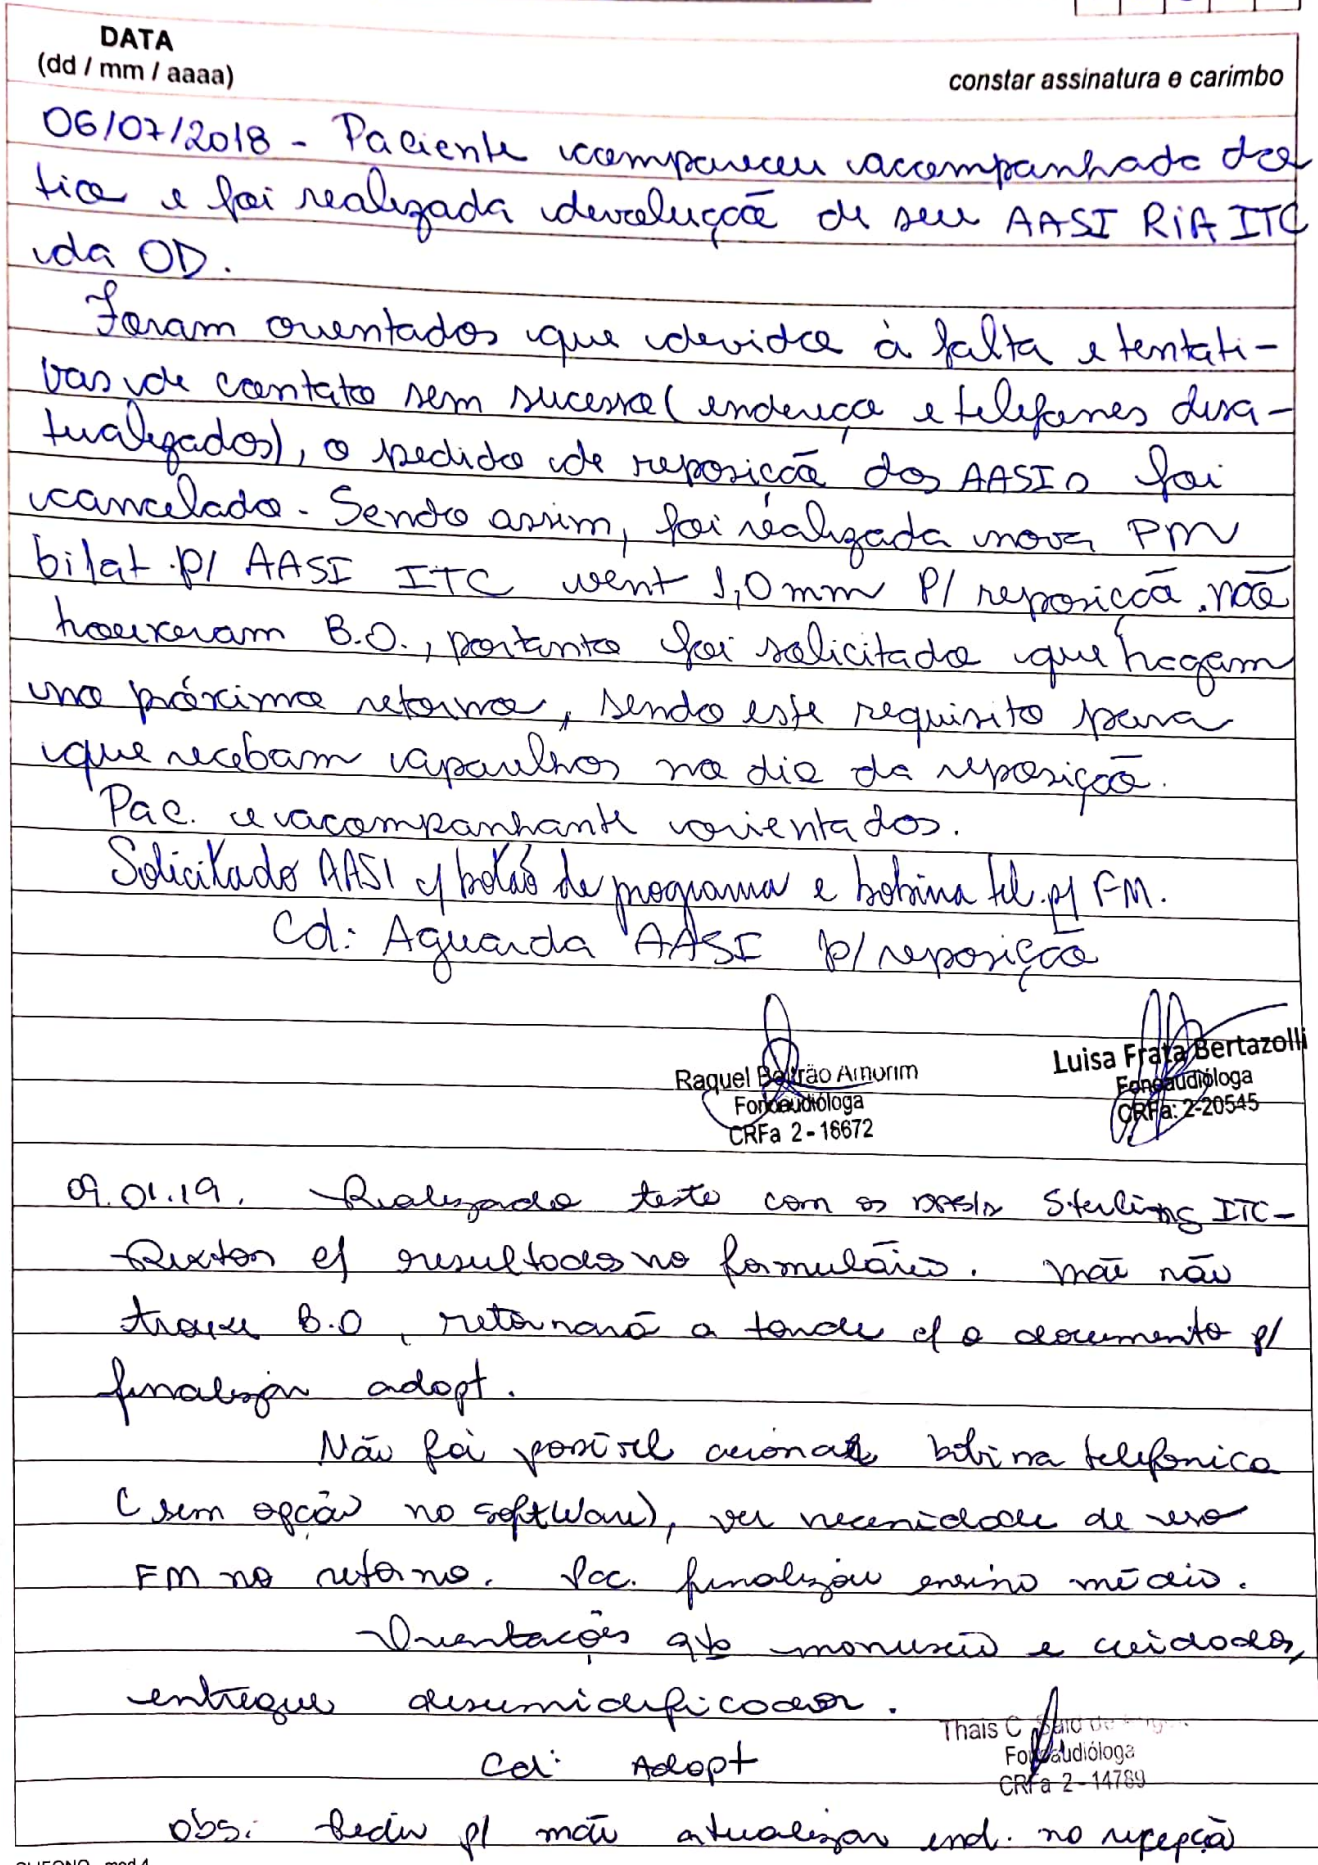 DATA
(dd / mm / aaaa)
constar assinatura e carimbo
06/07/2018 - Paciente compareceu acompanhado da
tia e foi realizada devolução de seu AASI RIA ITC
da OD.
Foram orientados que devido à falta e tentati-
vas de contato sem sucesso (endereço e telefones desa-
tualizados), o pedido de reposição dos AASIs foi
cancelado. Sendo assim, foi realizada nova PM
bilat. p/ AASI ITC vent 1,0 mm p/ reposição. Não
trouxeram B.O., portanto foi solicitado que tragam
no próximo retorno, sendo este requisito para
que recebam aparelhos no dia da reposição.
Pac. e acompanhante orientados.
Solicitado AASI c/ botão de programa e bobina tel. p/ FM.
Cd: Aguarda AASI p/ reposição
Raquel Beltrão Amorim
Fonoaudióloga
CRFa 2-16672
Luisa Frata Bertazolli
Fonoaudióloga
CRFa: 2-20545
09.01.19. Realizado teste com os AASIs Sterling ITC-
Rexton c/ resultados no formulário. Mãe não
trouxe B.O, retornará a tarde c/ o documento p/
finalizar adapt.
Não foi possível acionar bobina telefonica
(sem opção no software), ver necessidade de uso
FM no retorno. Pac. finalizou ensino médio.
Orientações qto manuseio e cuidados,
entregue desumidificador.
Cd: Adapt
Thais C
Fonoaudióloga
CRFa 2-14789
obs: Pedir p/ mãe atualizar end. no recepção
mod.4